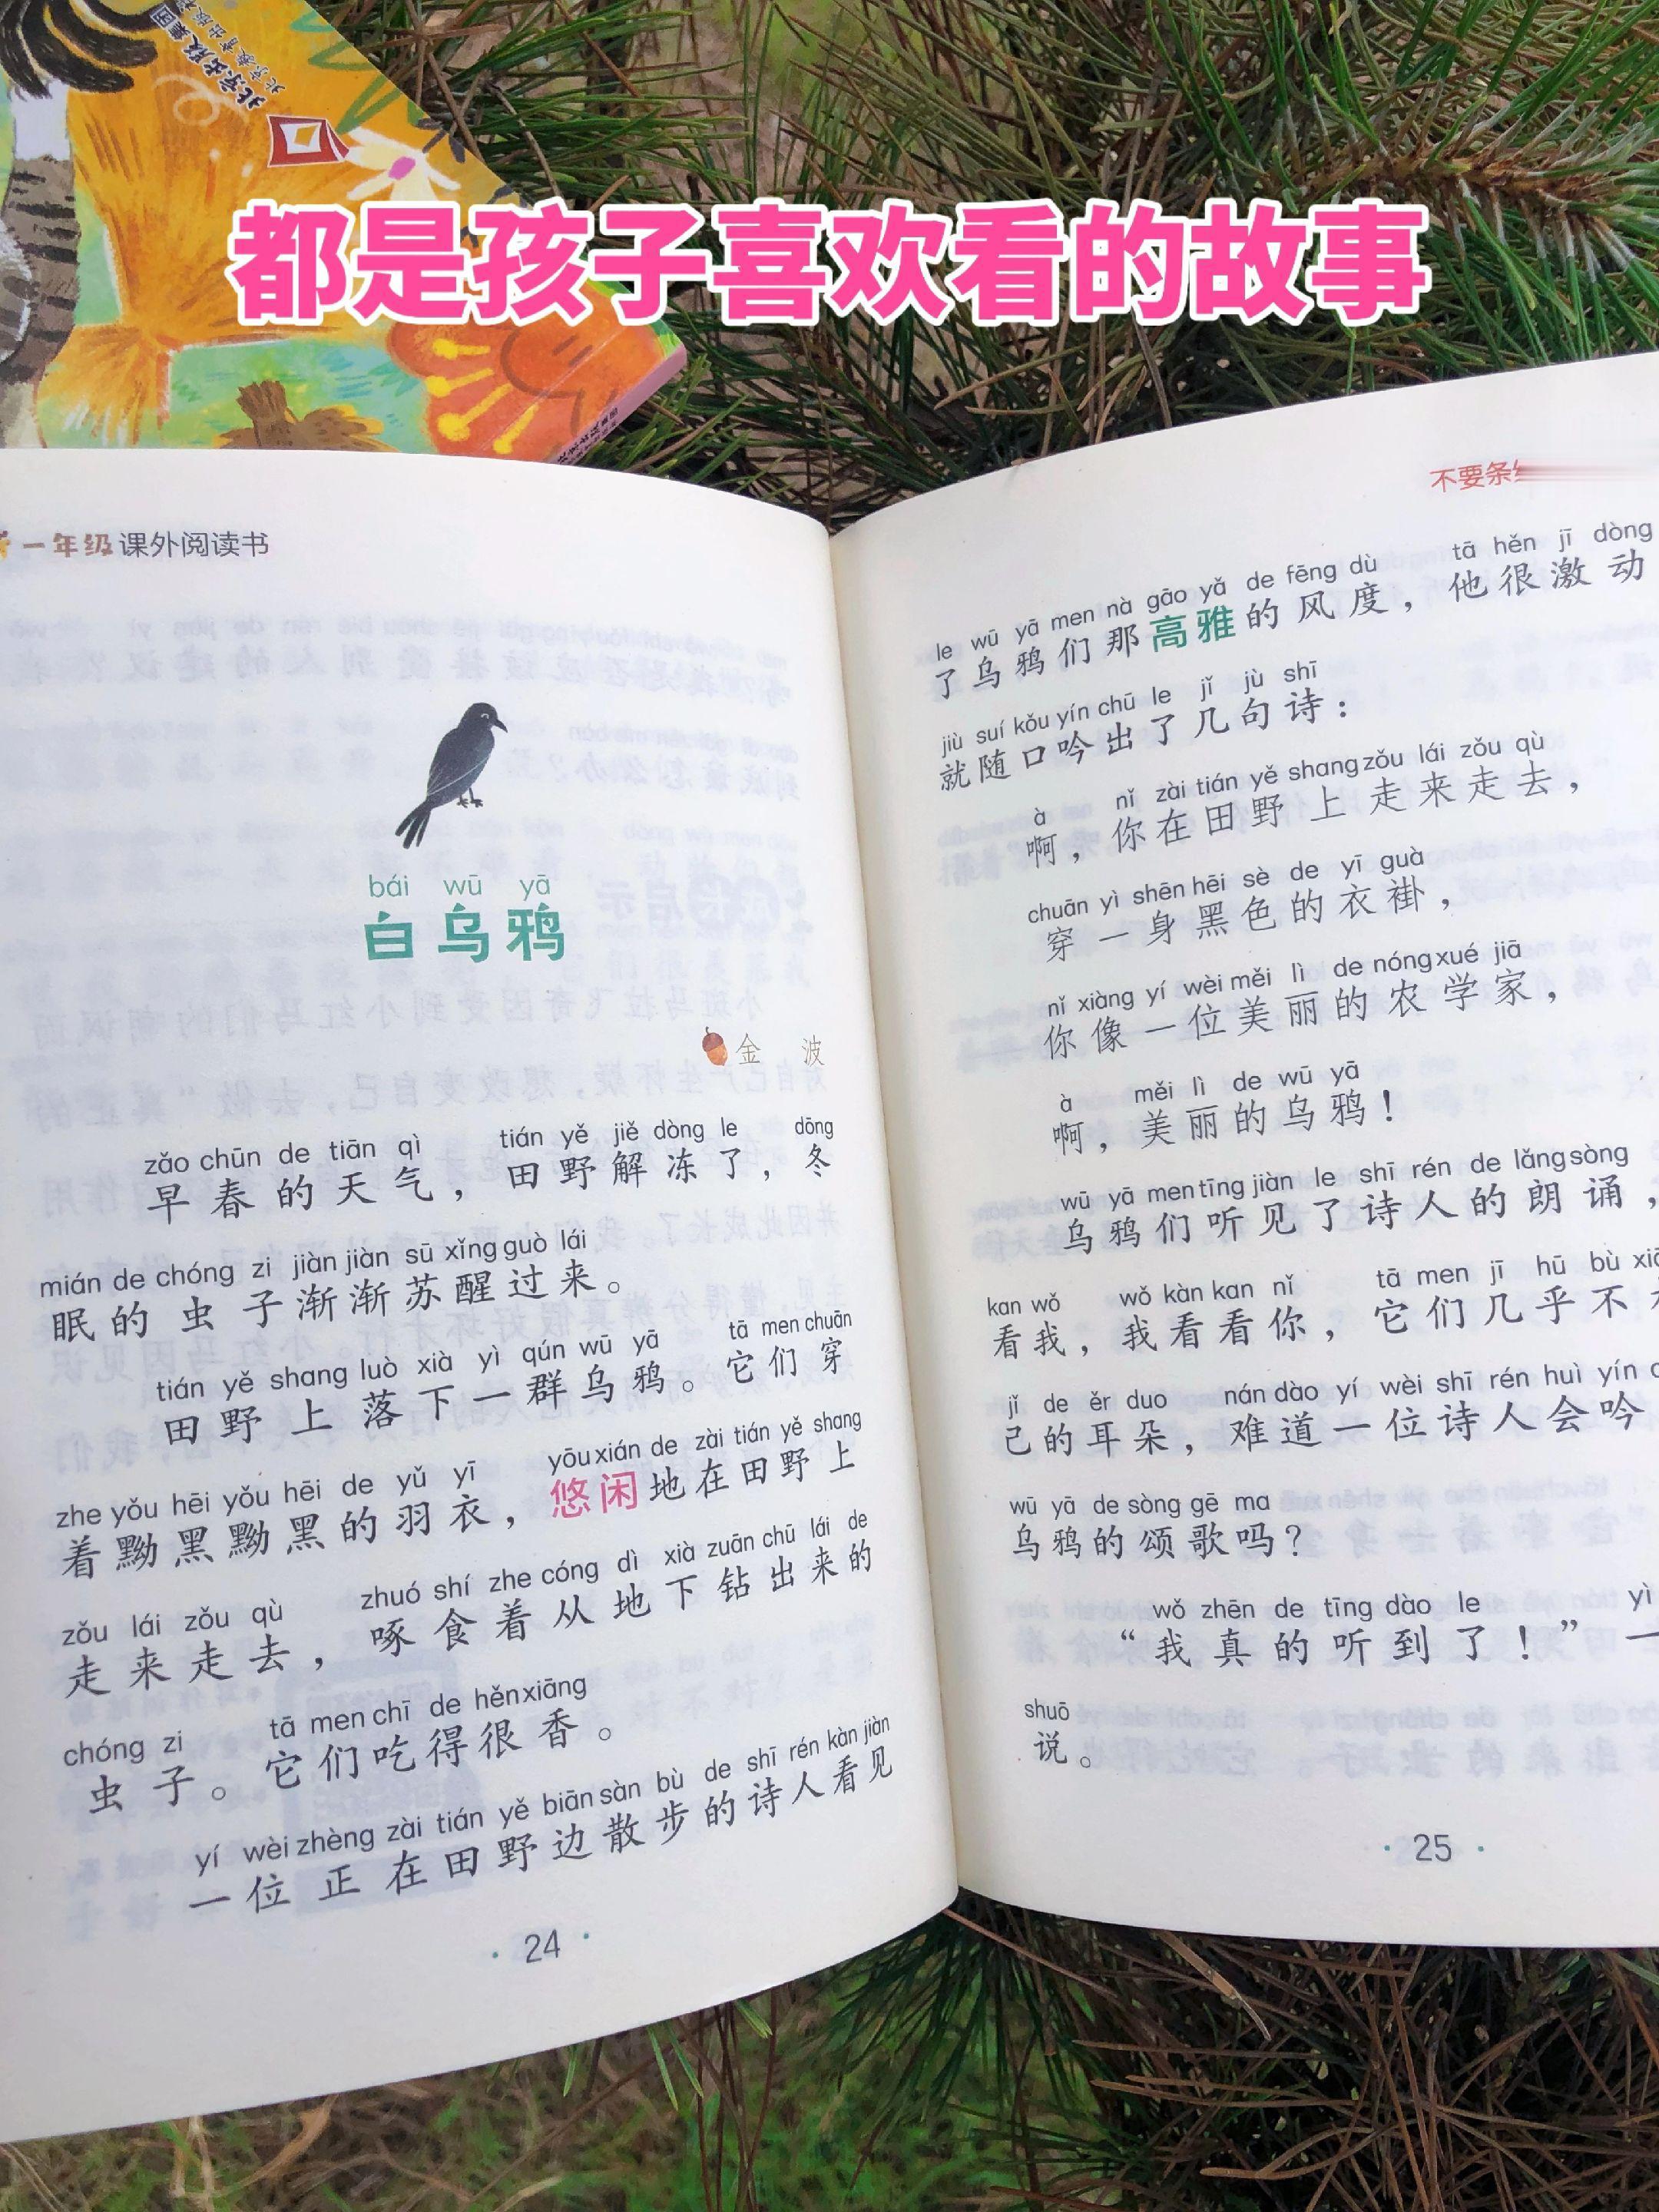 北京出版集团
北京教育出版社
都是孩子喜欢看的故事
一年级课外阅读书
bái wū yā
白乌鸦
金 波
zǎo chūn de tiān qì tián yě jiě dòng le dōng
早春的天气，田野解冻了，冬
mián de chóng zi jiàn jiàn sū xǐng guò lái
眠的虫子渐渐苏醒过来。
tián yě shang luò xià yì qún wū yā tā men chuān
田野上落下一群乌鸦。它们穿
zhe yǒu hēi yǒu hēi de yǔ yī yōu xián de zài tián yě shang
着黝黑黝黑的羽衣，悠闲地在田野上
zǒu lái zǒu qù zhuó shí zhe cóng dì xià zuān chū lái de
走来走去，啄食着从地下钻出来的
chóng zi tā men chī de hěn xiāng
虫子。它们吃得很香。
yí wèi zhèng zài tián yě biān sàn bù de shī rén kàn jiàn
一位正在田野边散步的诗人看见
24
不要条
le wū yā men nà gāo yǎ de fēng dù tā hěn jī dòng
了乌鸦们那高雅的风度，他很激动
jiù suí kǒu yín chū le jǐ jù shī
就随口吟出了几句诗：
à nǐ zài tián yě shang zǒu lái zǒu qù
啊，你在田野上走来走去，
chuān yì shēn hēi sè de yī guà
穿一身黑色的衣褂，
nǐ xiàng yí wèi měi lì de nóng xué jiā
你像一位美丽的农学家，
à měi lì de wū yā
啊，美丽的乌鸦！
wū yā men tīng jiàn le shī rén de lǎng sòng
乌鸦们听见了诗人的朗诵，
kan wǒ wǒ kàn kan nǐ tā men jī hū bù
看我，我看看你，它们几乎不
jǐ de ěr duo nán dào yí wèi shī rén huì yín
己的耳朵，难道一位诗人会吟
wū yā de sòng gē ma
乌鸦的颂歌吗？
wǒ zhēn de tīng dào le yì
“我真的听到了！”一
shuō
说。
25